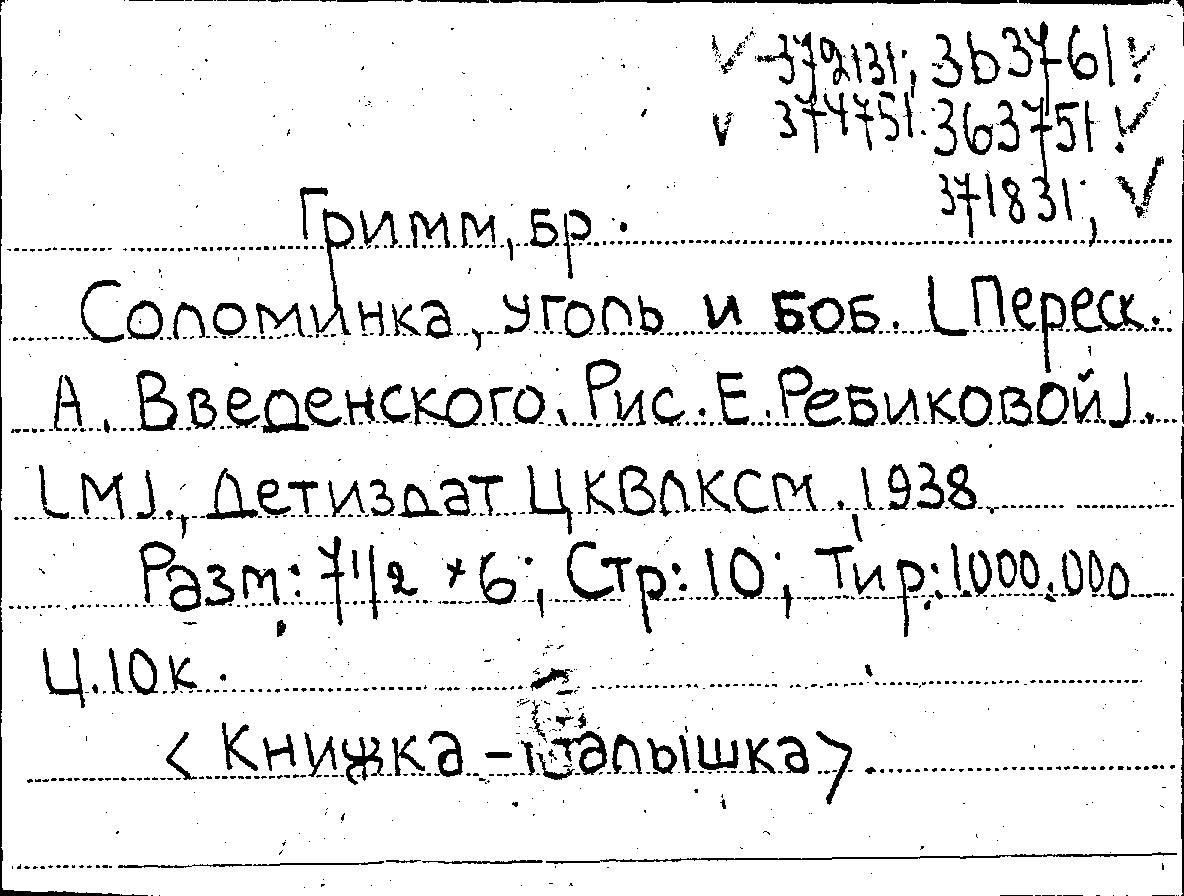 372131; 363761.
374751. 363751.
371831;
Гримм, бр.
Соломинка, уголь и боб. [Переск.
А. Введенского. Рис. Е. Ребиковой].
[М]., Детиздат ЦКВЛКСМ, 1938.
Разм: 7 1/2 × 6; Стр: 10; Тир: 1000.000
Ц. 10 к.
<Книжка-малышка>.